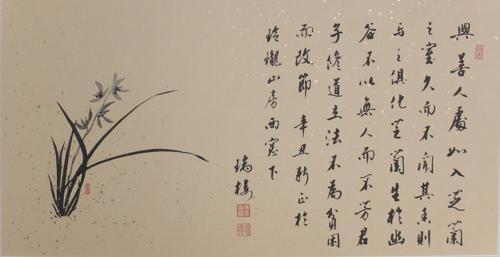 與善人處如入芝蘭
之室久而不聞其香則
与之俱化芝蘭生於幽
谷不以無人而不芳君
子脩道立法不為貧困
而改節辛丑新正於
玲瓏山房西窓下
瑞樓